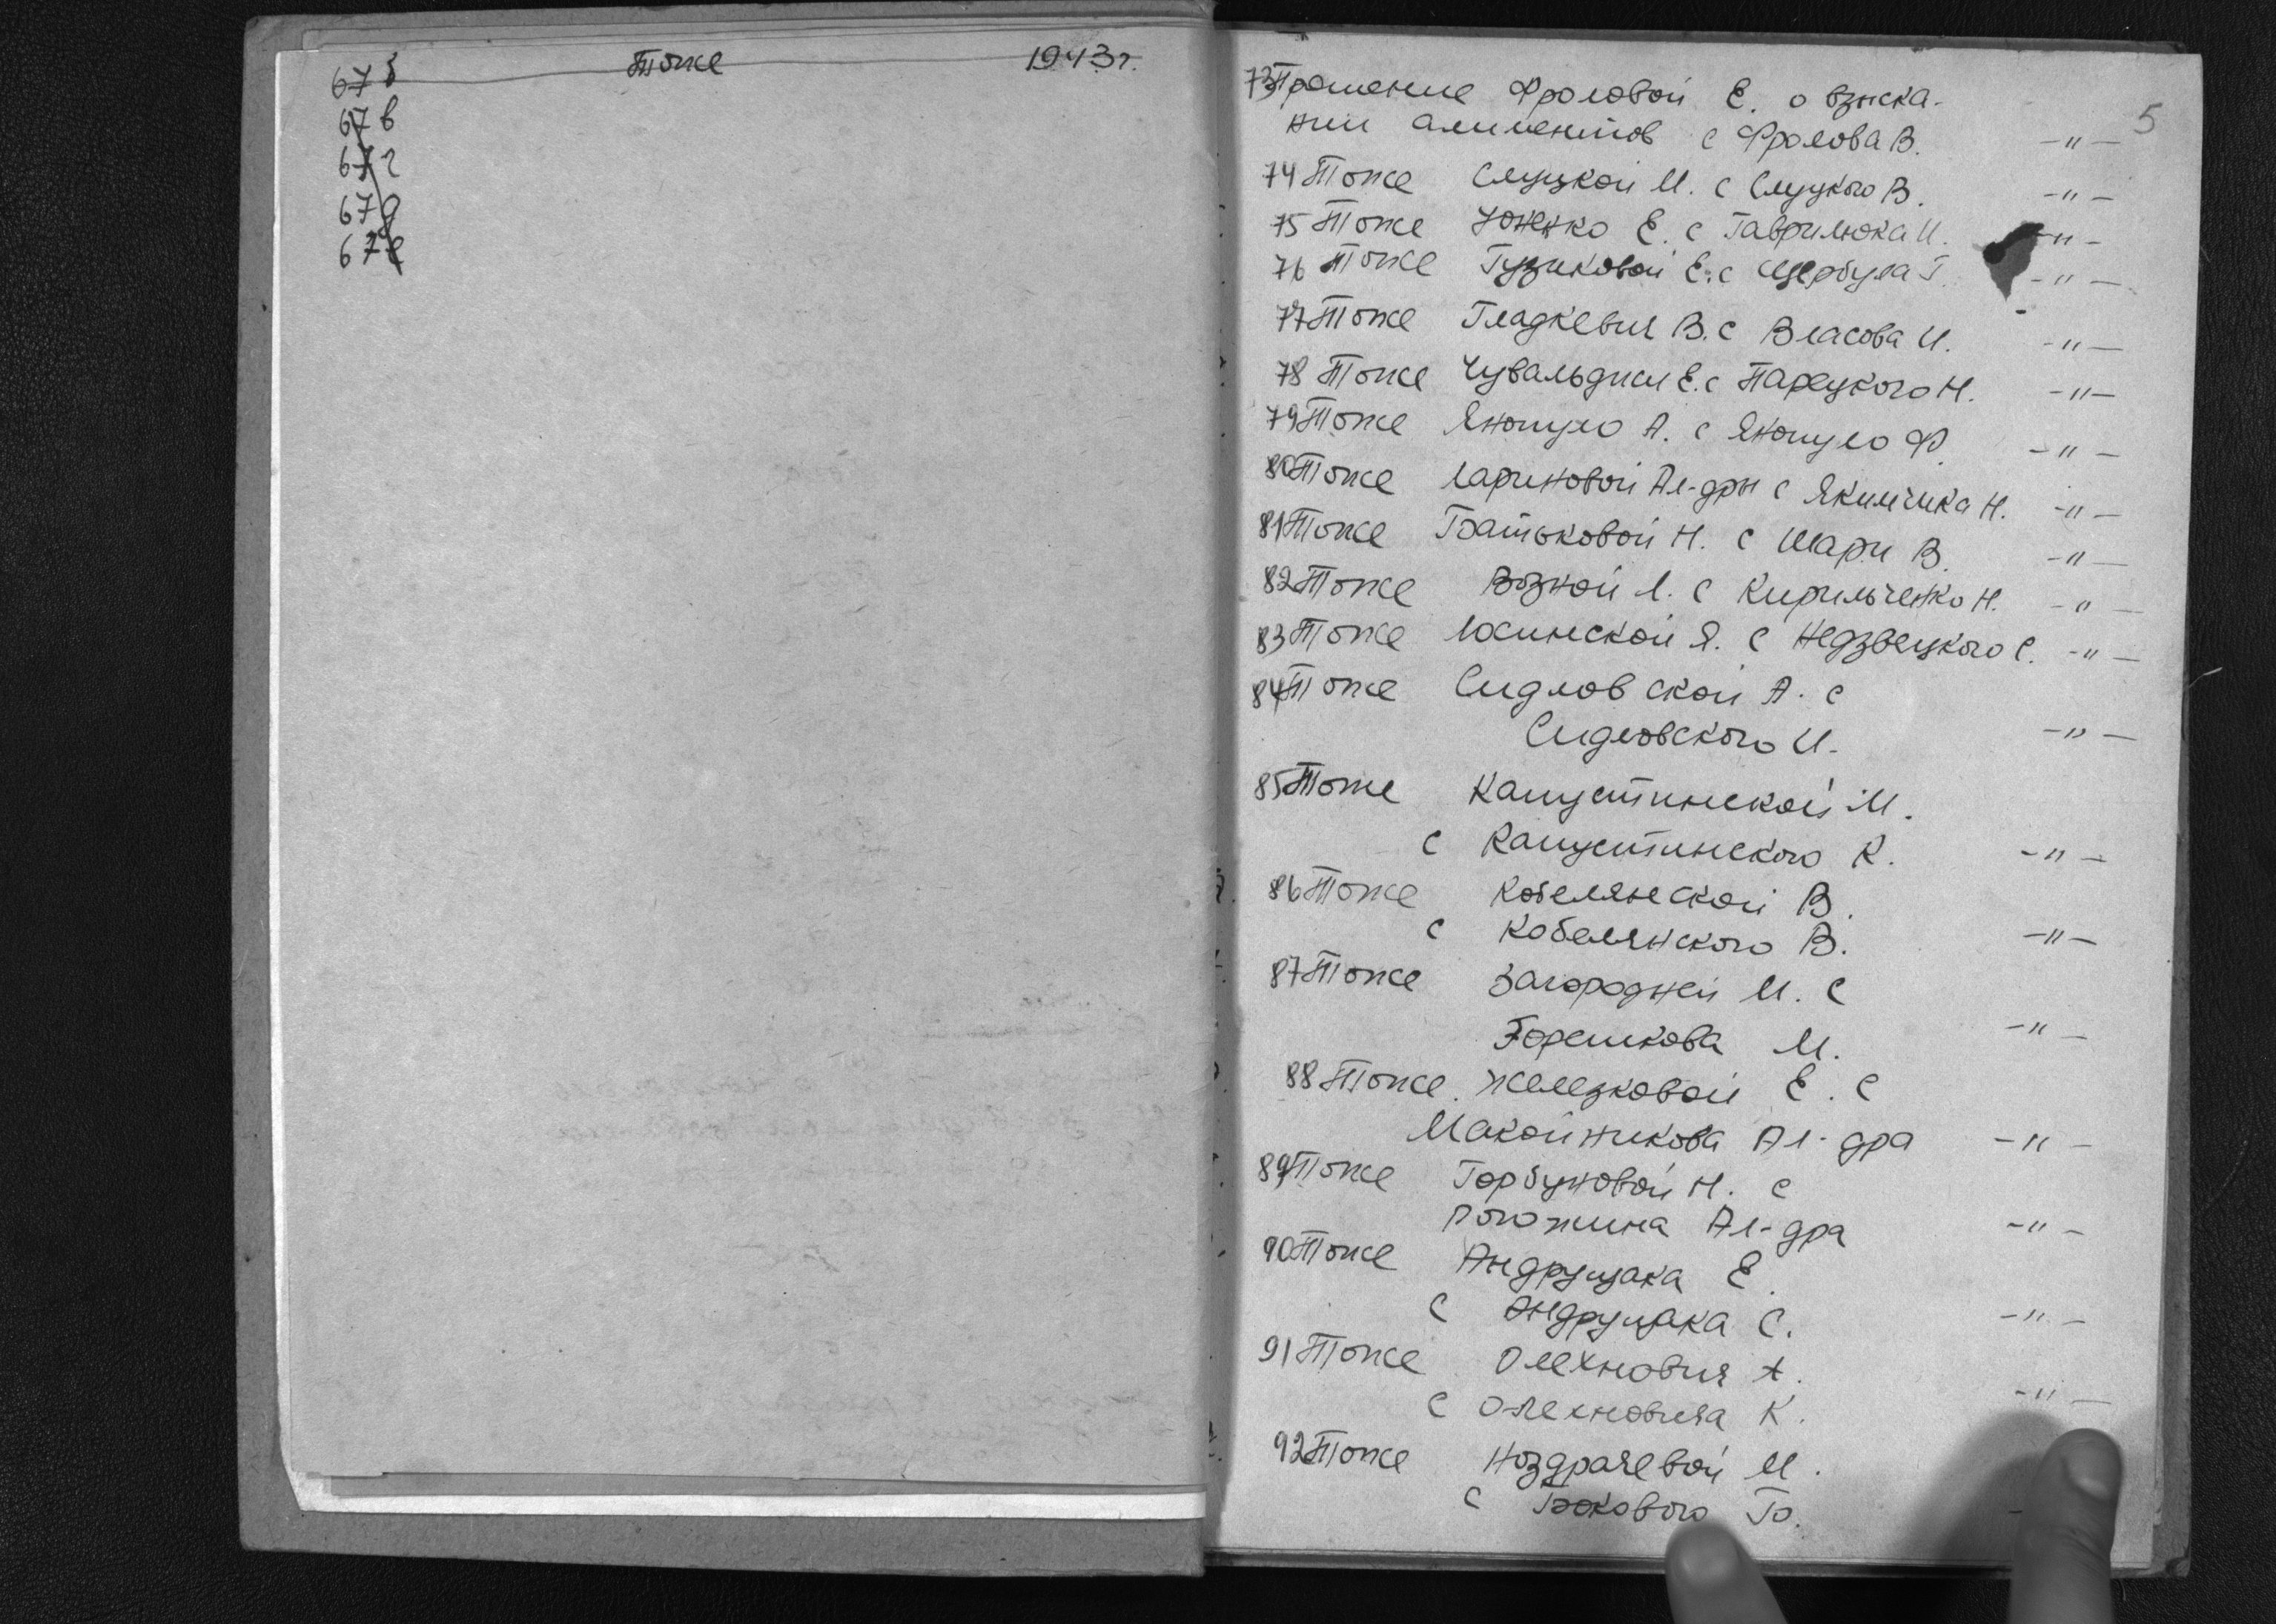 67б Тоже 1943 г.
67в
67г
67д
67е
5
73 Прошение Фроловой Е. о взыска-
нии алиментов с Фролова В. -"-
74 Тоже Слуцкой М. с Слуцкого В. -"-
75 Тоже Юненко Е. с Гаврилюка И. -"-
76 Тоже Гузиковой Е. с Щербула Г. -"-
77 Тоже Гладкевич В. с Власова И. -"-
78 Тоже Чувальдиси Е. с Парецкого Н. -"-
79 Тоже Яношуло А. с Яношуло Ф. -"-
80 Тоже Лариновой Ал-дры с Якимчика Н. -"-
81 Тоже Батьковой Н. с Шари В. -"-
82 Тоже Возной Л. с Кирильченко Н. -"-
83 Тоже Лосинской Я. с Недзвецкого С. -"-
84 Тоже Сидловской А. с
Сидловского И. -"-
85 Тоже Капустинской М.
с Капустинского К. -"-
86 Тоже Кобелянской В.
с Кобелянского В. -"-
87 Тоже Загородней М. с
Горешкова М. -"-
88 Тоже Железковой Е. с
Макойникова Ал-дра -"-
89 Тоже Горбуновой Н. с
Рогожина Ал-дра -"-
90 Тоже Андрущака Е.
с Андрущака С. -"-
91 Тоже Олехнович А.
с Олехновича К. -"-
92 Тоже Ноздрачевой М.
с Бокового Б.